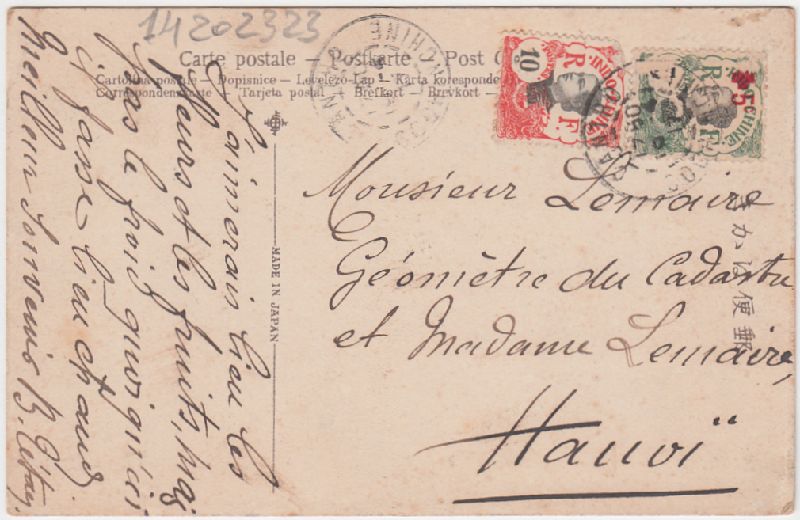 14202323
Carte postale — Postkarte — Post
Cartolina postale — Dopisnice — Levelező-Lap — Karta korespondenc
Correspondenzkarte — Tarjeta postal — Brefkort — Brevkort —
COCHINCHINE
10
INDO-CHINE
R F
INDOCHINE
R F
5
J'aimerais bien les
fleurs et les fruits, mais
pas le froid quoiqu'ici
il fasse bien chaud
Meilleur Souvenir
MADE IN JAPAN
Monsieur Lemaire
Géomètre du Cadastre
et Madame Lemaire,
Hanoï
きかは便郵